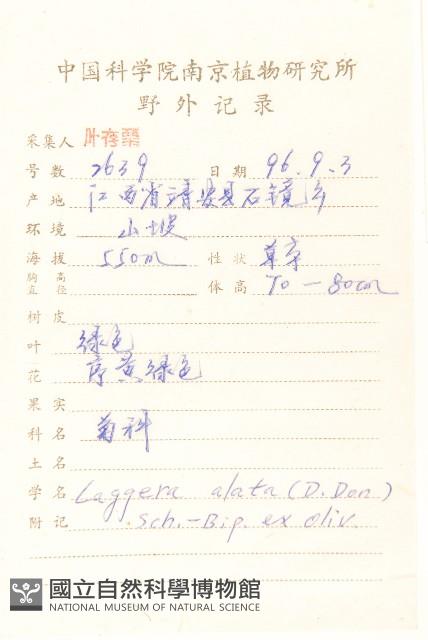 中国科学院南京植物研究所
野外记录
采集人 叶存粟
号数 2639 日期 96.9.3
产地 江西省靖安县石镜乡
环境 山坡
海拔 550m 性状 草本
胸高直径 体高 70—80cm
树皮
叶 绿色
花 序黄绿色
果实
科名 菊科
土名
学名 Laggera alata (D. Don)
附记 Sch.-Bip. ex Oliv.
國立自然科學博物館
NATIONAL MUSEUM OF NATURAL SCIENCE